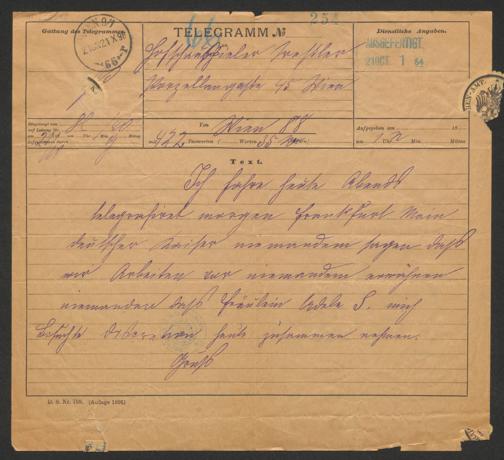 Gattung des Telegrammes
TELEGRAMM №
254
Dienstliche Angaben.
AUSGEFERTIGT
21OCT. 1 54
Hofschauspieler Treßler
Porzellangasse 45 Wien
Von Wien 88
422
Worten
Aufgegeben am
Uhr
Min.
Mittag
Text.
Ich fahre heute Abends
telegrafiret morgen Frankfurt Main
deutscher Kaiser niemandem sagen daß
wir Arbeiten vor niemandem erwähnen
niemandem daß Fräulein Adele S. mich
besuchte Discretion heute zusammen nehmen.
Gruß
D. S. Nr. 708. (Auflage 1896)